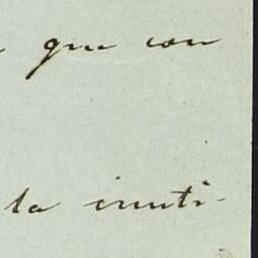 que con
la inuti-